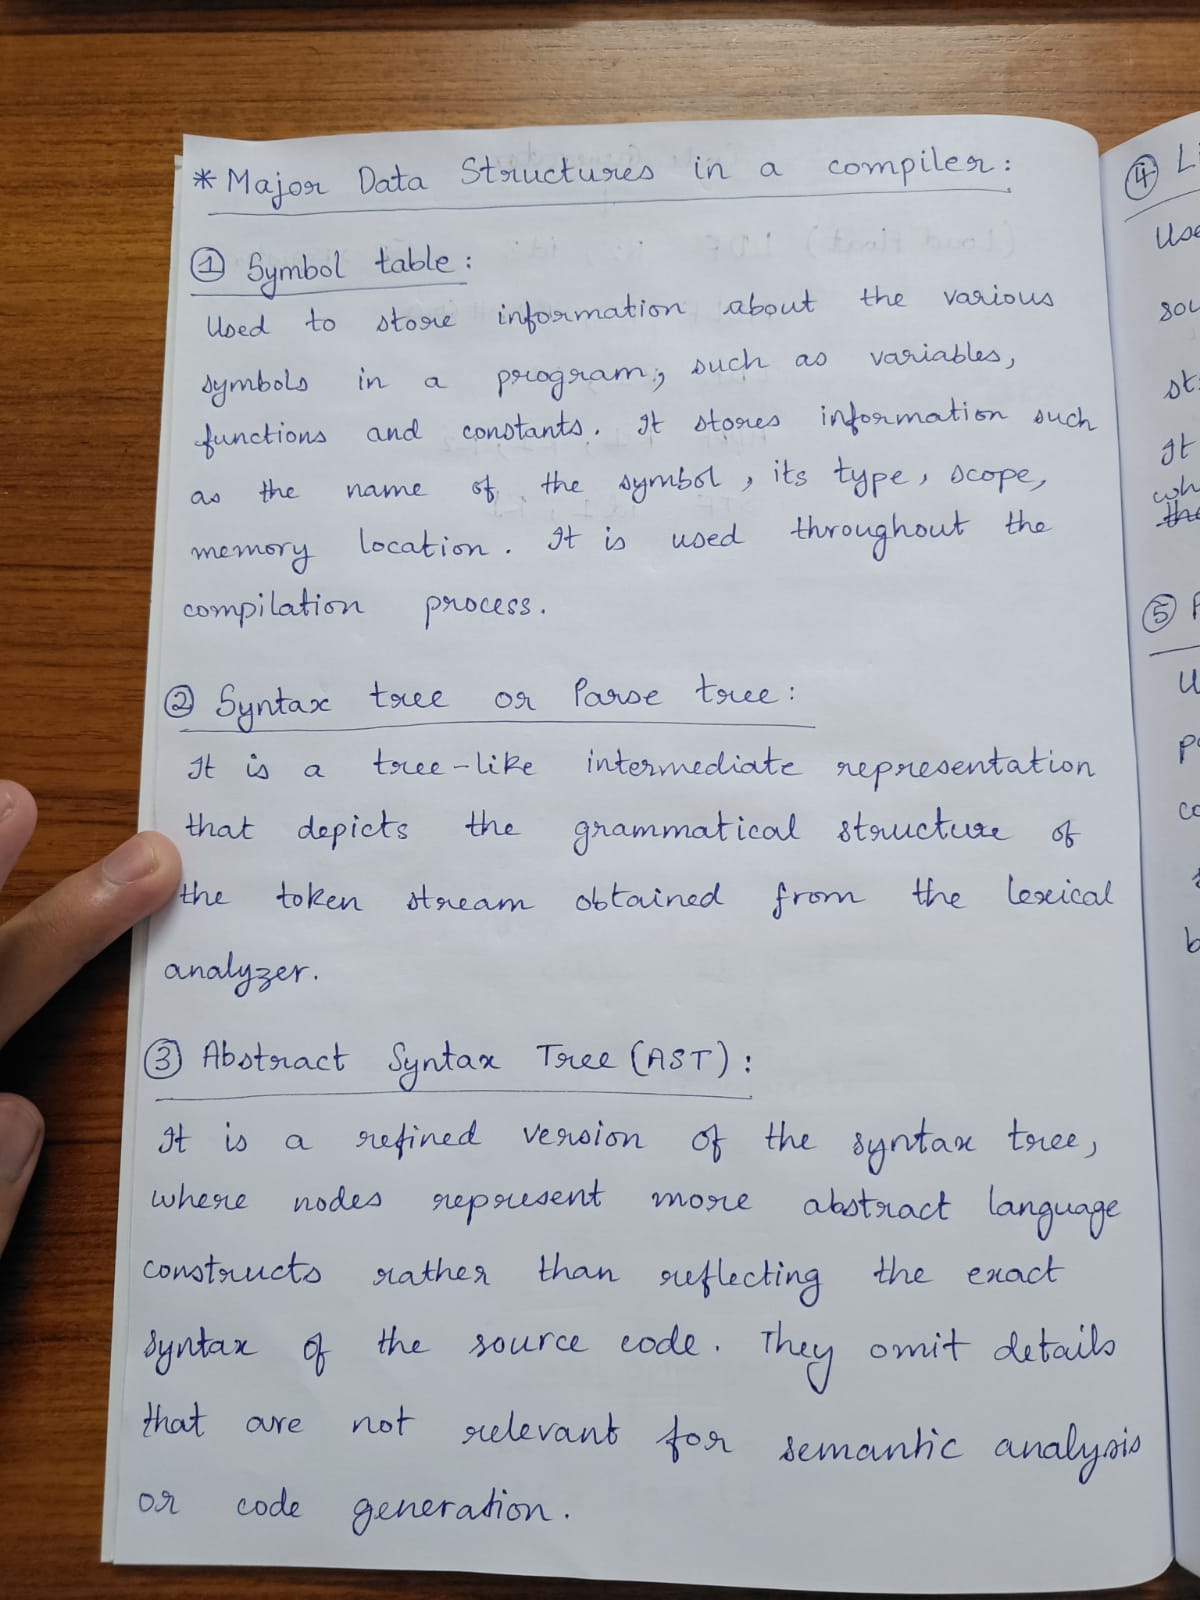 * Major Data Structures in a compiler:
① Symbol table:
Used to store information about the various
symbols in a program, such as variables,
functions and constants. It stores information such
as the name of the symbol, its type, scope,
memory location. It is used throughout the
compilation process.
② Syntax tree or Parse tree:
It is a tree-like intermediate representation
that depicts the grammatical structure of
the token stream obtained from the lexical
analyzer.
③ Abstract Syntax Tree (AST):
It is a refined version of the syntax tree,
where nodes represent more abstract language
constructs rather than reflecting the exact
syntax of the source code. They omit details
that are not relevant for semantic analysis
or code generation.
④
It
⑤